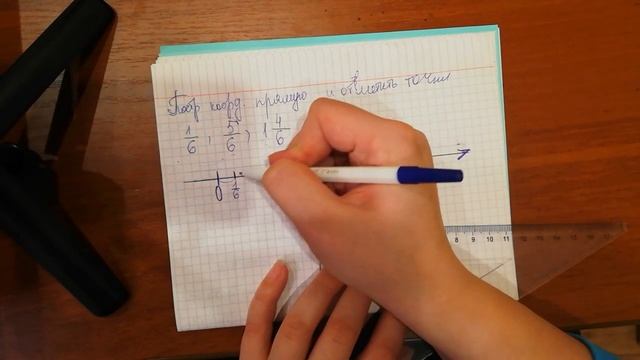 Постр коорд. прямую и отметить точки
1/6 , 5/6 , 1 4/6
0 1/6
8 9 10 11